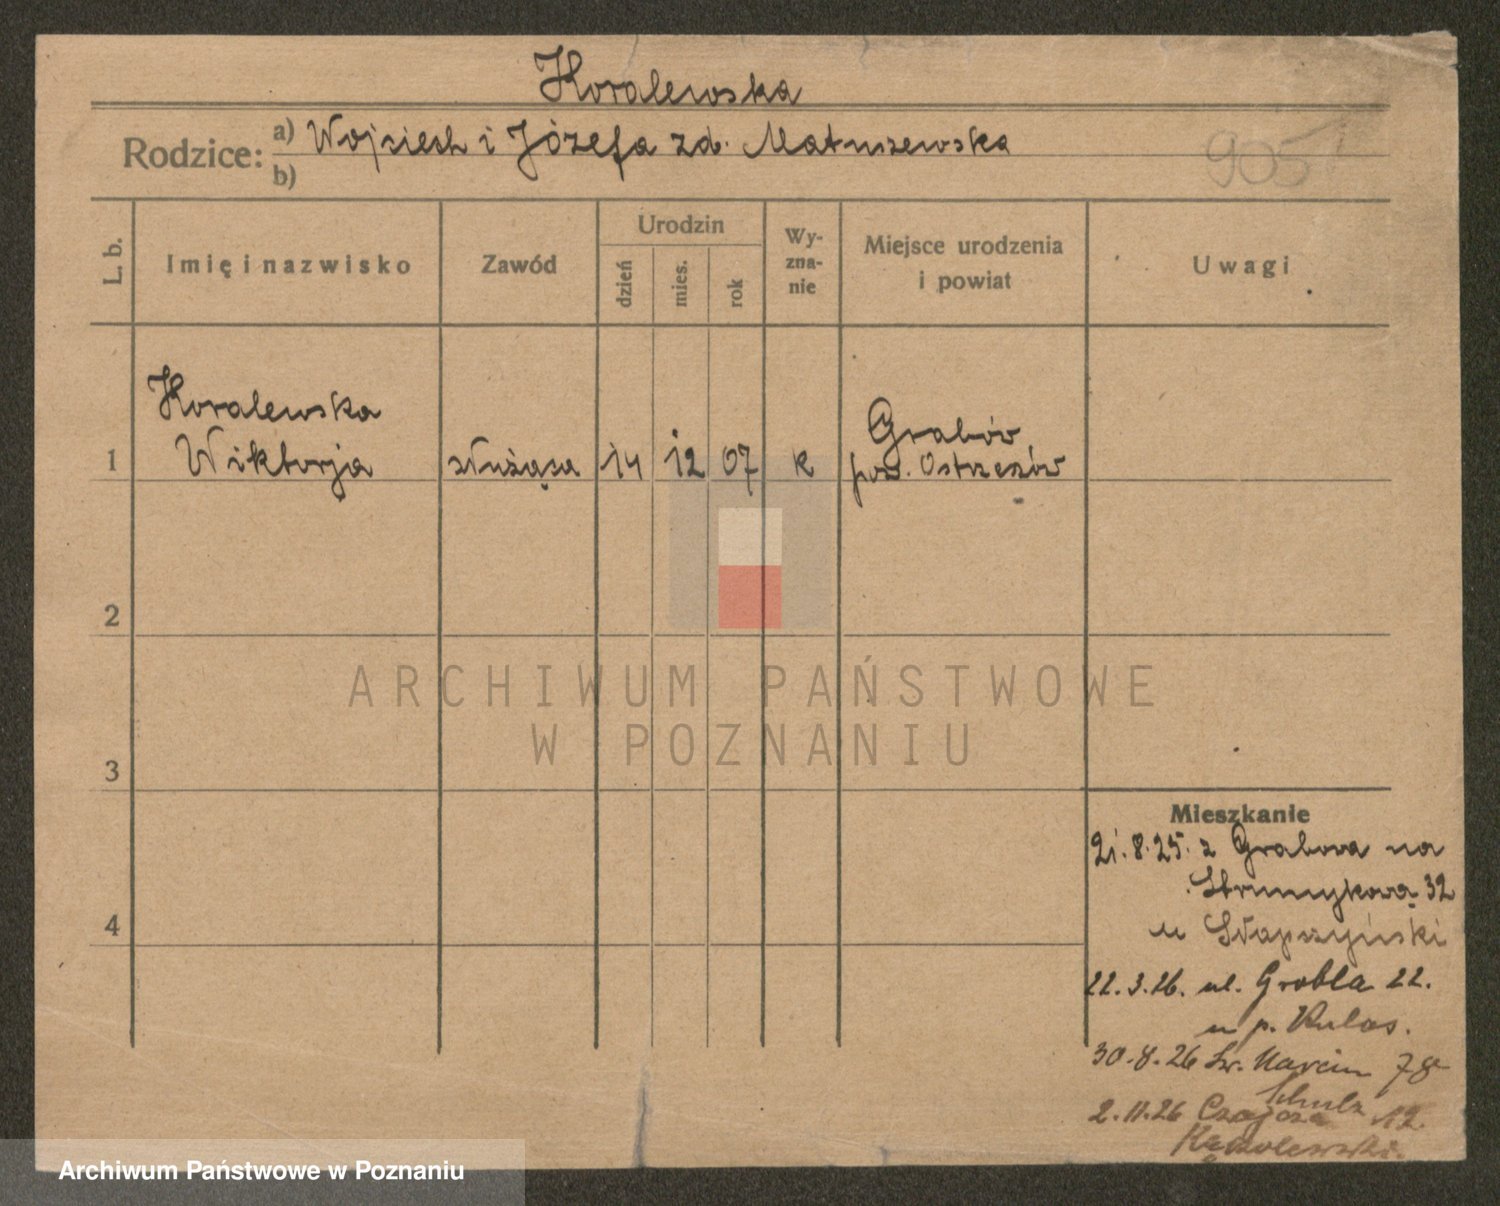 Koralewska
Rodzice: a) Wojciech i Józefa zd. Matuszewska
b)
905
L. b. Imię i nazwisko Zawód Urodzin dzień mies. rok Wy-zna-nie Miejsce urodzenia i powiat Uwagi
Koralewska
1 Wiktorja służąca 14 12 07 k Grabów
pow. Ostrzeszów
2
3
4
Mieszkanie
21.8.25. z Grabowa na
Strumykową 32
u Słapczyński
22.3.26. ul. Grobla 22.
u p. Kulas.
30.8.26 Św. Marcin 78
Schulz
2.11.26 Czajcza 12.
Kąkolewski.
ARCHIWUM PAŃSTWOWE
W POZNANIU
Archiwum Państwowe w Poznaniu